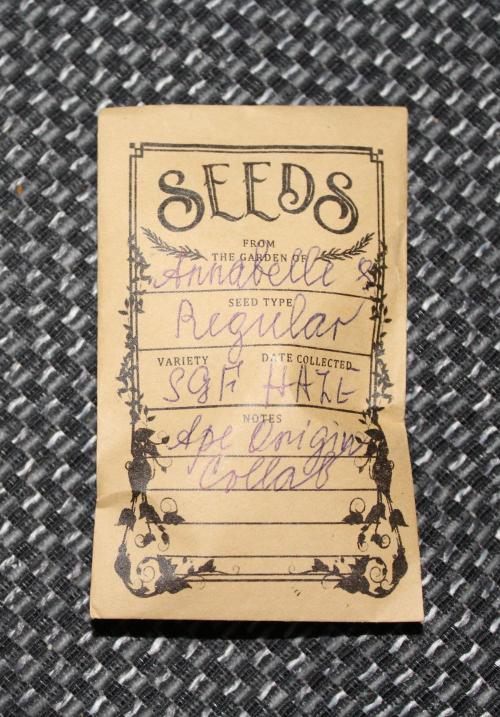 SEEDS
FROM
THE GARDEN OF
Annabelle's
SEED TYPE
Regular
VARIETY DATE COLLECTED
SGF HAZE
NOTES
Ape Origin
Collab